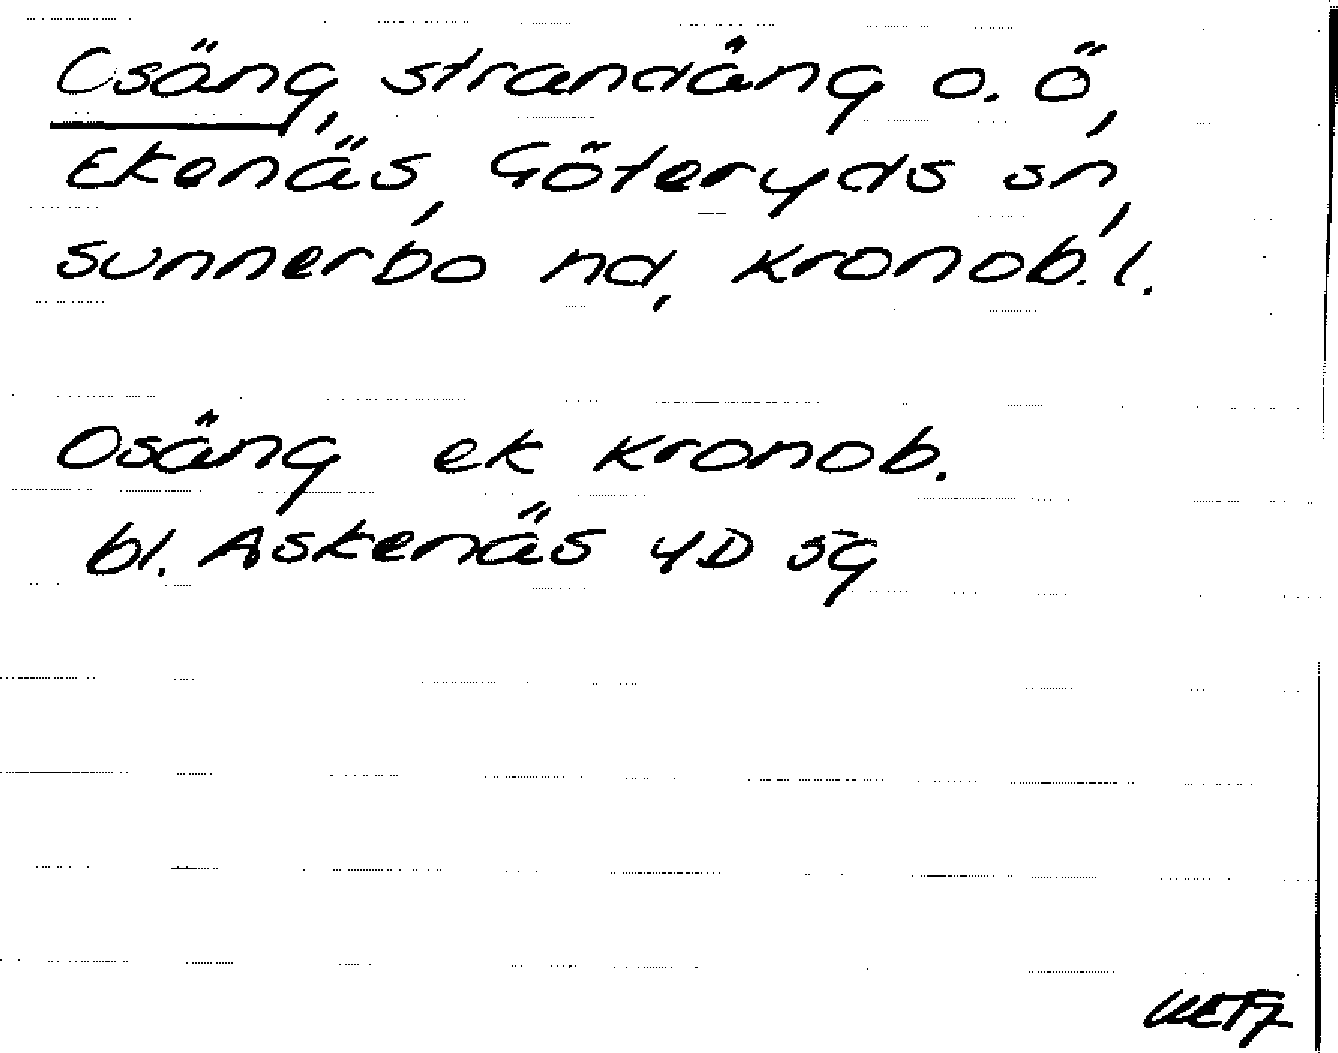 Osäng, strandäng o. ö,
Ekenäs, Göteryds sn,
Sunnerbo hd, Kronob. l.
Osäng ek Kronob.
bl. Askenäs 4D 5g